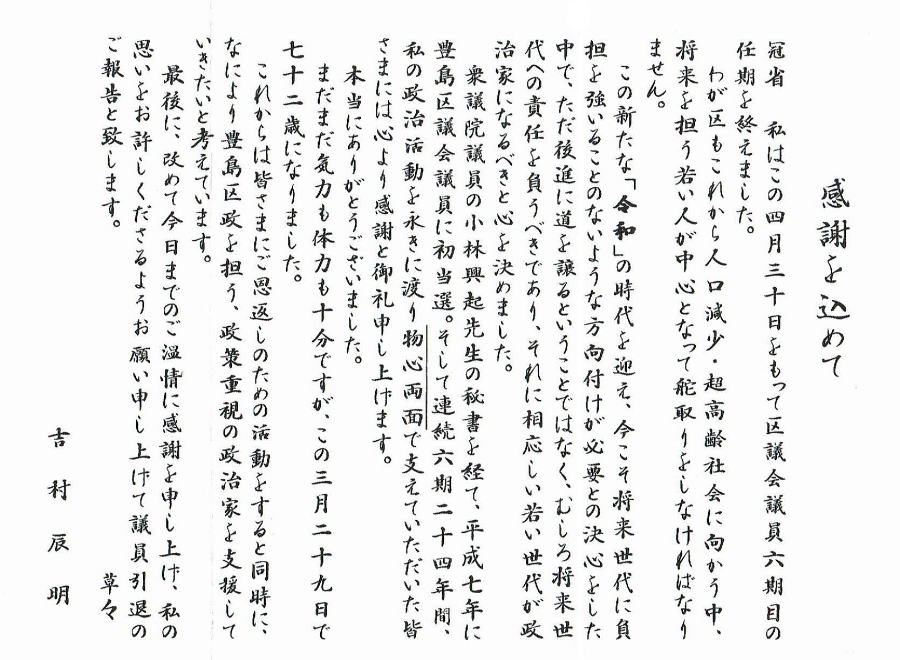 感謝を込めて
冠省　私はこの四月三十日をもって区議会議員六期目の
任期を終えました。
わが区もこれから人口減少・超高齢社会に向かう中、
将来を担う若い人が中心となって舵取りをしなければなり
ません。
この新たな「令和」の時代を迎え、今こそ将来世代に負
担を強いることのないような方向付けが必要との決心をした
中で、ただ後進に道を譲るということではなく、むしろ将来世
代への責任を負うべきであり、それに相応しい若い世代が政
治家になるべきと心を決めました。
衆議院議員の小林興起先生の秘書を経て、平成七年に
豊島区議会議員に初当選。そして連続六期二十四年間、
私の政治活動を永きに渡り物心両面で支えていただいた皆
さまには心より感謝と御礼申し上げます。
本当にありがとうございました。
まだまだ気力も体力も十分ですが、この三月二十九日で
七十二歳になりました。
これからは皆さまにご恩返しのための活動をすると同時に、
なにより豊島区政を担う、政策重視の政治家を支援して
いきたいと考えています。
最後に、改めて今日までのご温情に感謝を申し上げ、私の
思いをお許しくださるようお願い申し上げて議員引退の
ご報告と致します。
草々
吉村辰明